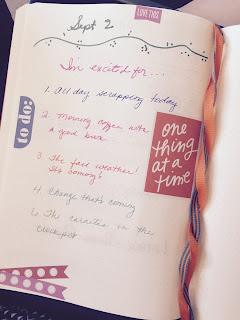 LOVE THIS
Sept 2
I'm excited for...
1. All day scrapping today
2. Morning coffee with
a good book
3. The fall weather!
Its coming!
4 Change that's coming
The in the
crockpot
to do:
one
thing
at a
time